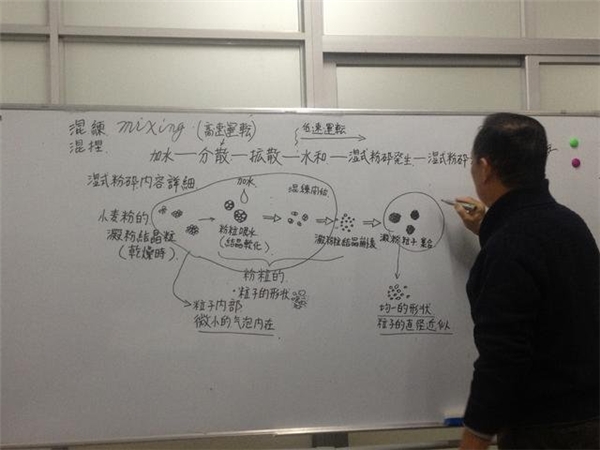 混練 mixing (高速運転) 低速運転
混捏
加水―分散―拡散―水和―湿式粉砕発生―湿式粉砕
湿式粉砕内容詳細 加水 混練開始
小麦粉的
澱粉結晶粒
(乾燥時)
粉粒吸水
(結晶軟化)
澱粉粒結晶崩壊
澱粉粒子集合
粉粒的
・粒子的形状
粒子内部
微小的气泡内在
均一的形状
粒子的直径近似